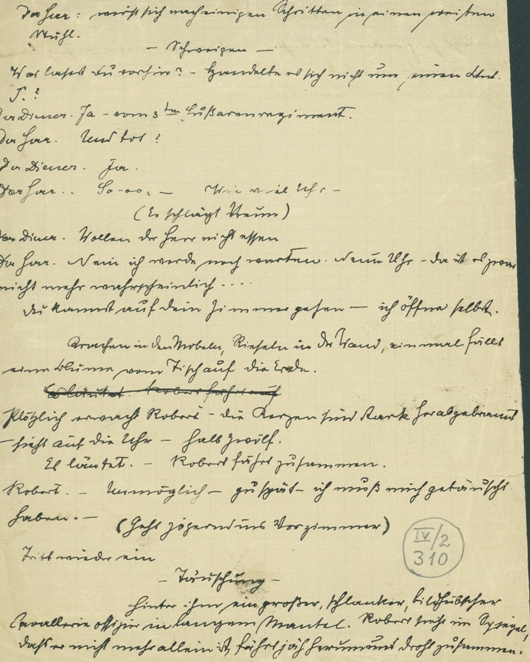 Der Herr: wirft sich nach einigen Schritten in einen zweiten
Stuhl.
— Schweigen —
Was lasest du vorhin? – Handelte es sich nicht um einen
T.?
Der Diener. Ja – vom 3ten Husarenregiment.
Der Herr. Und tot?
Der Diener. Ja.
Der Herr.. So-oo. — Wie viel Uhr –
(Es schlägt Neun)
Der Diener. Wollen der Herr nicht essen
Der Herr. Nein ich werde noch warten. Neun Uhr – da ist es zwar
nicht mehr wahrscheinlich ....
Du kannst auf dein Zimmer gehen — ich öffne selbst.
Krachen in den Möbeln, Rieseln in der Wand, einmal fällt
eine Blume vom Tisch auf die Erde.
Es läutet. Robert fährt auf
Plötzlich erwacht Robert – die Kerzen sind stark herabgebrannt
– sieht auf die Uhr – halb zwölf.
Es läutet. – Robert fährt zusammen.
Robert. – Unmöglich – zu spät – ich muß mich getäuscht
haben. – (Geht zögernd ins Vorzimmer)
Tritt wieder ein
– Täuschung –
Hinter ihm, ein großer, schlanker, bildhübscher
Cavallerieoffizier in langem Mantel. Robert sieht im Spiegel,
daß er nicht mehr allein ist, fährt jäh herum und droht zusammen.
IV/2
310